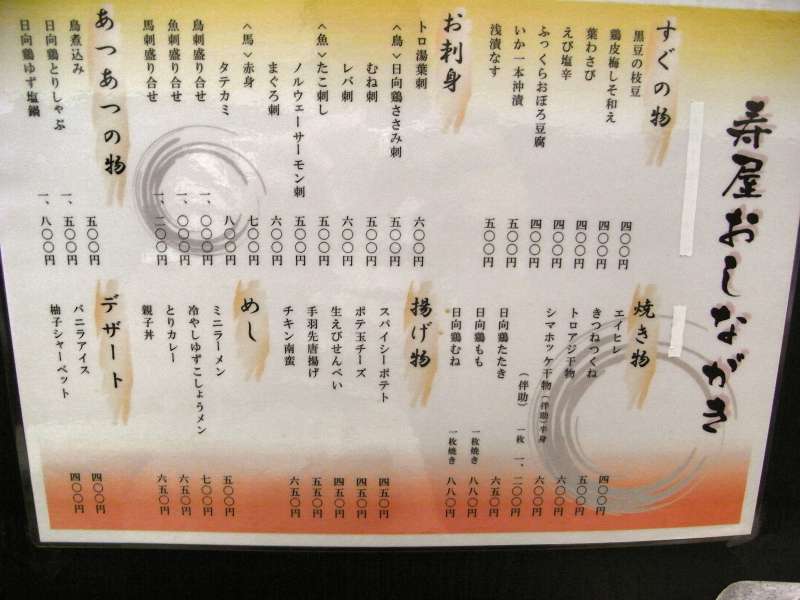 寿屋おしながき
すぐの物
黒豆の枝豆 四〇〇円
鶏皮梅しそ和え 四〇〇円
葉わさび 四〇〇円
えび塩辛 四〇〇円
ふっくらおぼろ豆腐 四〇〇円
いか一本沖漬 五〇〇円
浅漬なす 五〇〇円
お刺身
トロ湯葉刺 六〇〇円
〈鳥〉日向鶏ささみ刺 五〇〇円
むね刺 五〇〇円
レバ刺 六〇〇円
〈魚〉たこ刺し 五〇〇円
ノルウェーサーモン刺 五〇〇円
まぐろ刺 六〇〇円
〈馬〉赤身 七〇〇円
タテガミ 八〇〇円
鳥刺盛り合せ 一、〇〇〇円
魚刺盛り合せ 一、〇〇〇円
馬刺盛り合せ 一、二〇〇円
あつあつの物
鳥煮込み 五〇〇円
日向鶏とりしゃぶ 一、五〇〇円
日向鶏ゆず塩鍋 一、八〇〇円
焼き物
エイヒレ 四〇〇円
きつねつくね 五〇〇円
トロアジ干物 六〇〇円
シマホッケ干物(伴助)半身 六〇〇円
(伴助) 一枚 一、二〇〇円
日向鶏たたき 六五〇円
日向鶏もも 一枚焼き 八八〇円
日向鶏むね 一枚焼き 八八〇円
揚げ物
スパイシーポテト 四五〇円
ポテ玉チーズ 四五〇円
生えびせんべい 四五〇円
手羽先唐揚げ 五五〇円
チキン南蛮 六五〇円
めし
ミニラーメン 五〇〇円
冷やしゆずこしょうメン 七〇〇円
とりカレー 六五〇円
親子丼 六五〇円
デザート
バニラアイス 四〇〇円
柚子シャーベット 四〇〇円